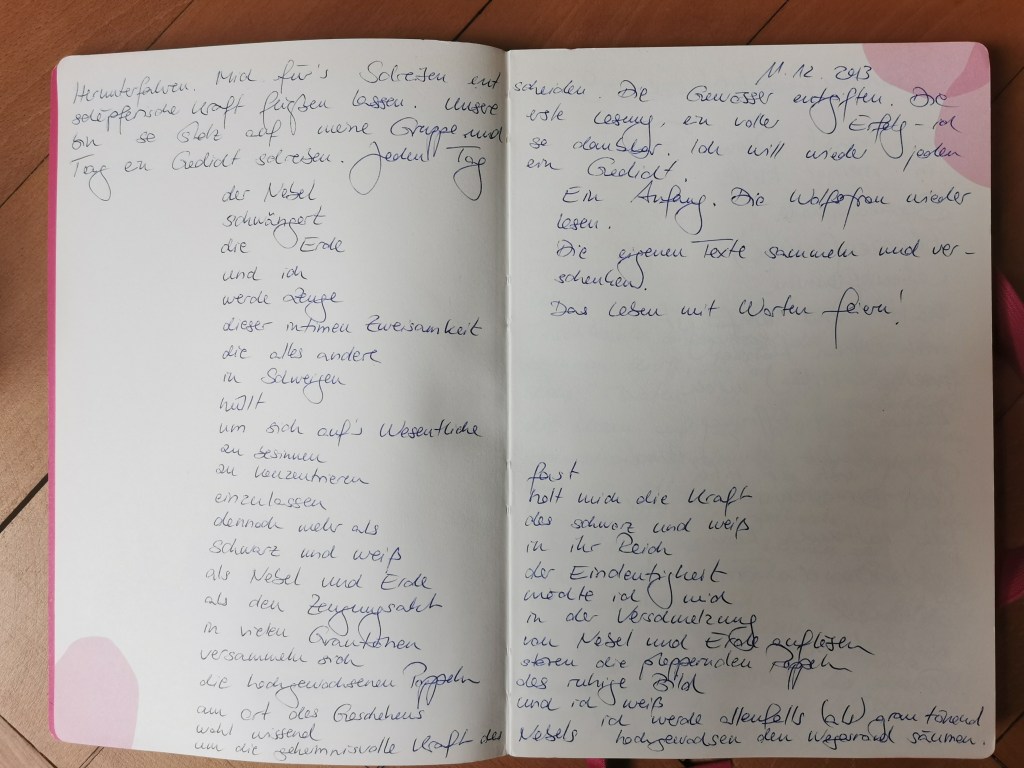 11.12.2013
Herunterfahren. Mich für's Schreiben ent scheiden. Die Gewässer entgiften. Die
schöpferische Kraft fließen lassen. Unsere erste Lesung, ein voller Erfolg – ich
bin so stolz auf meine Gruppe und so dankbar. Ich will wieder jeden
Tag ein Gedicht schreiben. Jeden Tag ein Gedicht.
Ein Anfang. Die Wolfsfrau wieder
lesen.
Die eigenen Texte sammeln und ver-
schenken.
Das Leben mit Worten feiern!
der Nebel
schwängert
die Erde
und ich
werde Zeuge
dieser intimen Zweisamkeit
die alles andere
in Schweigen
hüllt
um sich auf's Wesentliche
zu besinnen
zu konzentrieren
einzulassen
dennoch mehr als
schwarz und weiß
als Nebel und Erde
als den Zeugungsakt
in vielen Grautönen
versammeln sich
die hochgewachsenen Pappeln
am ort des Geschehens
wohl wissend
um die geheimnisvolle Kraft des Nebels
fast
holt mich die Kraft
des schwarz und weiß
in ihr Reich
der Eindeutigkeit
möchte ich mich
in der Verschmelzung
von Nebel und Erde auflösen
stören die plappernden Pappeln
das ruhige Bild
und ich weiß
ich werde allenfalls (als) grau tönend
hochgewachsen den Wegesrand säumen.